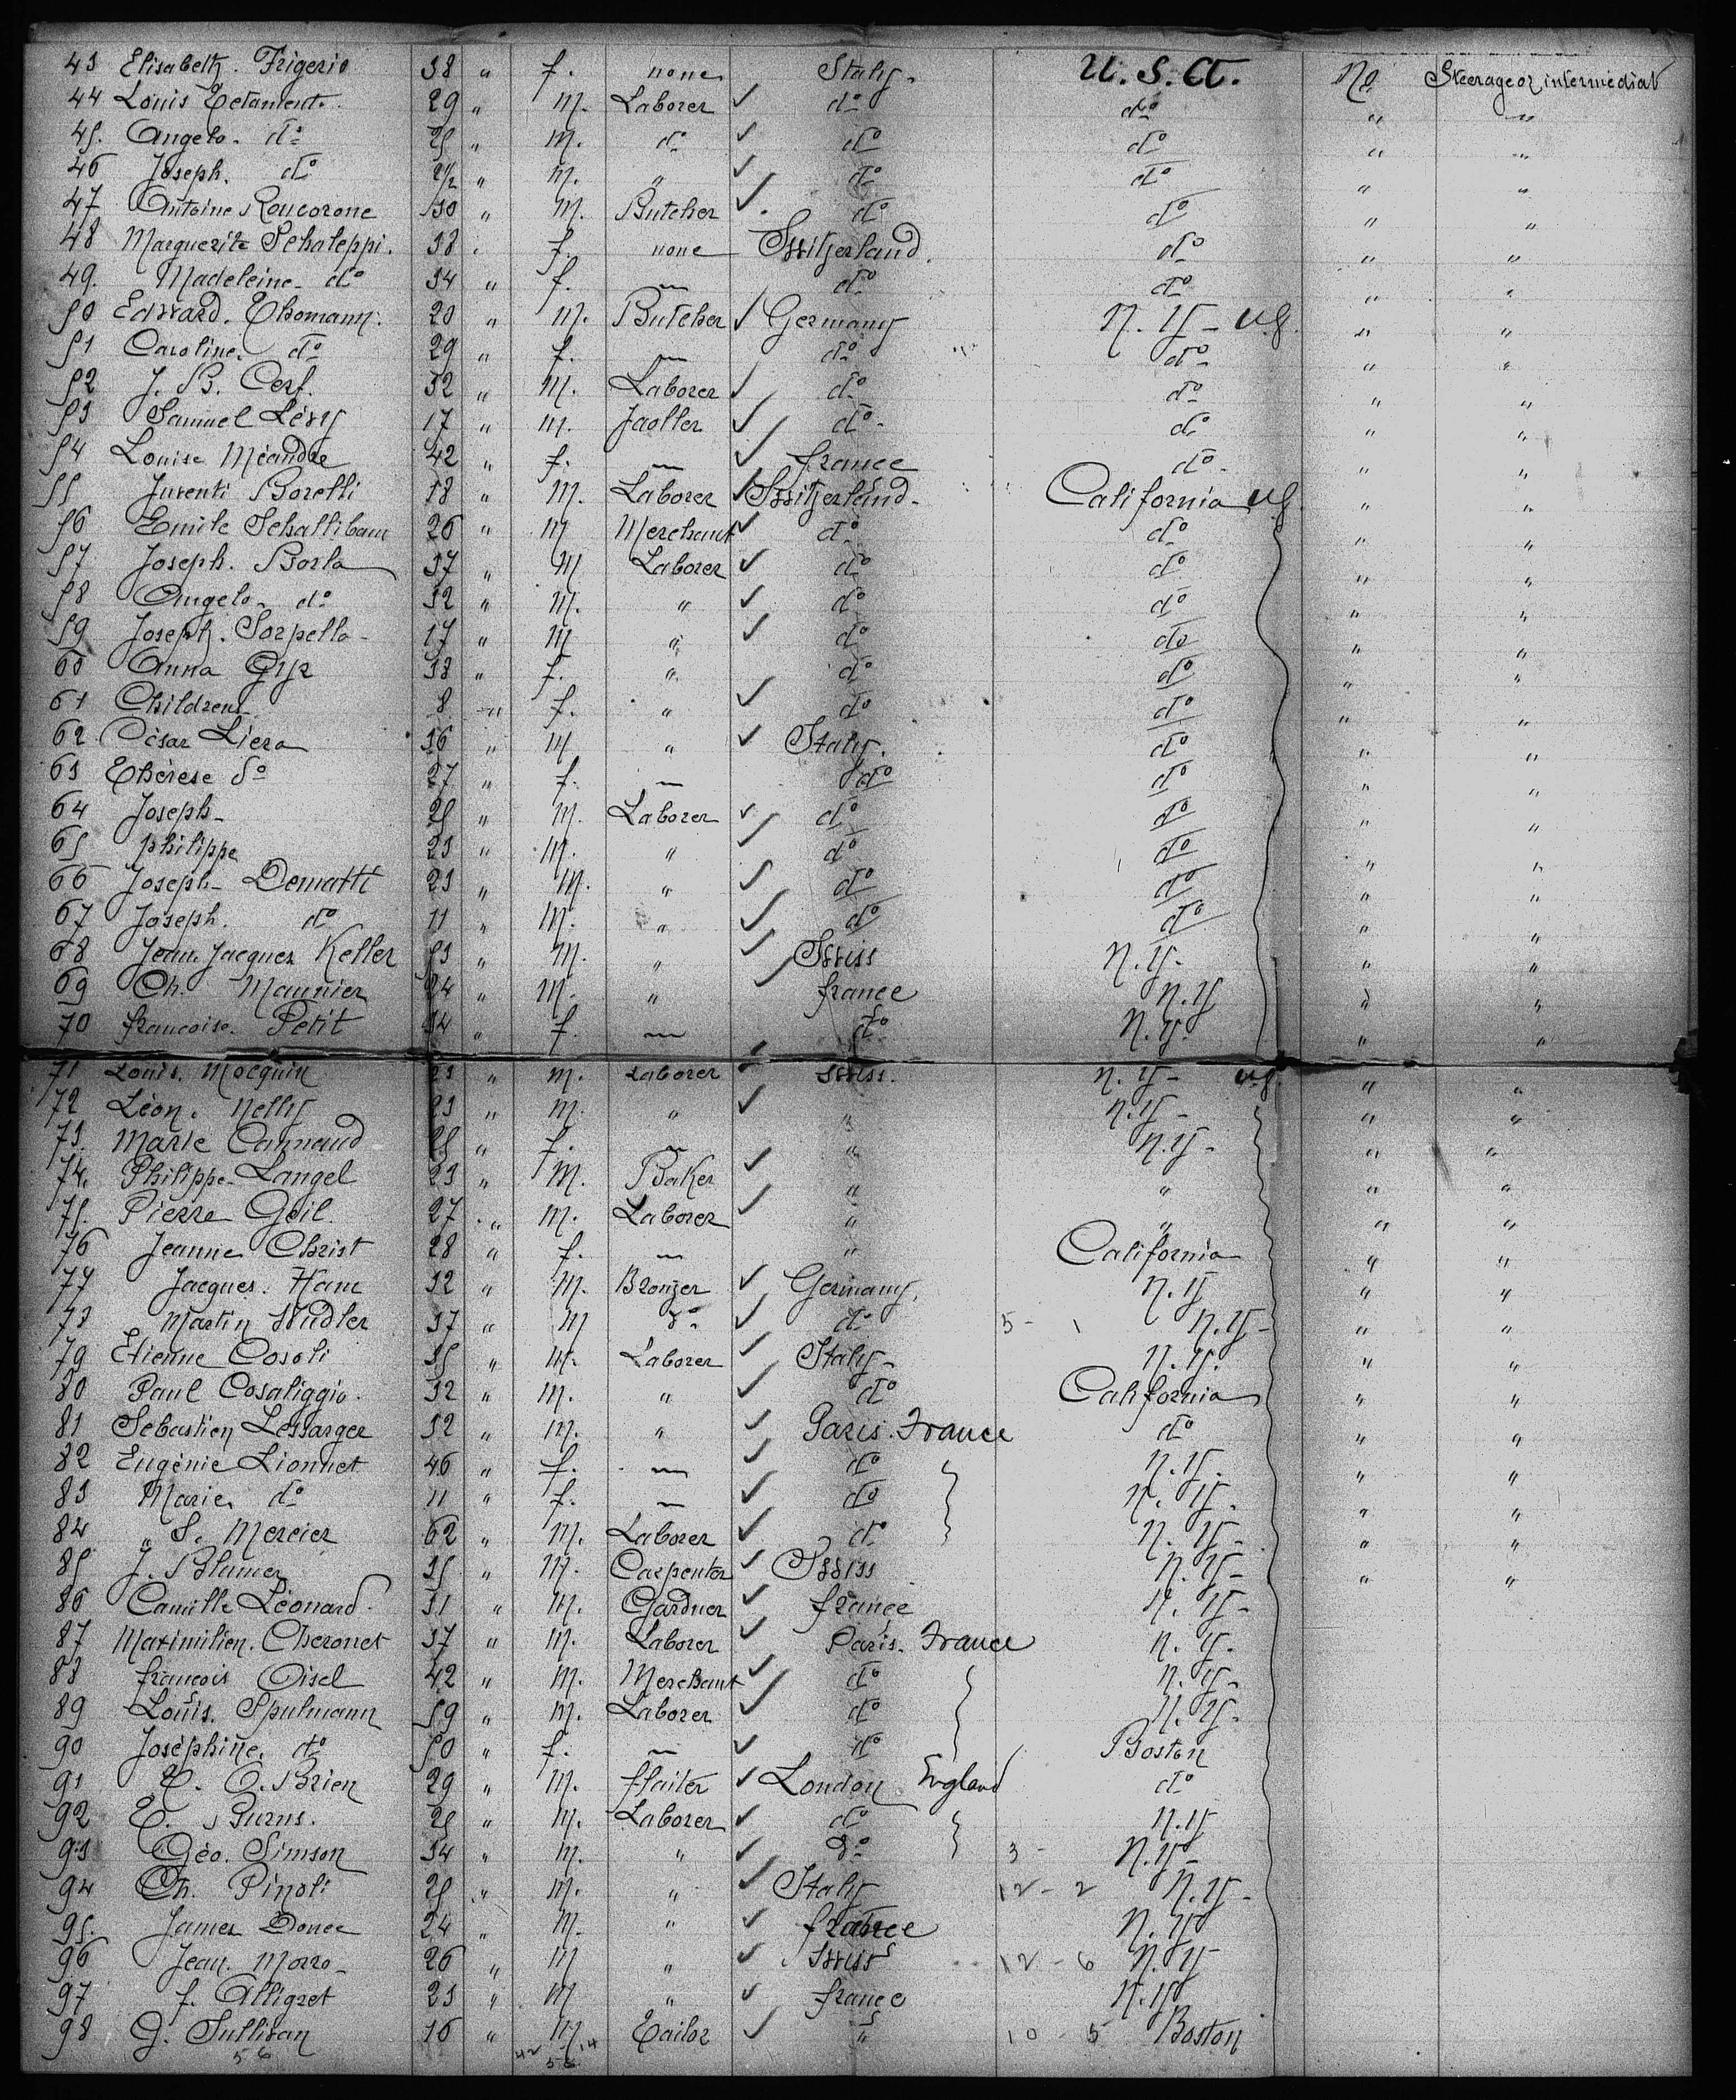 43 Elisabeth. Frigerio 38 " f. none Italy. U. S. A. No Steerage or intermediat
44 Louis 29 " m. Laborer ✓ do do " "
45. Angelo. do 25 " m. do ✓ do do " "
46 Joseph. do " m. " ✓ do do " "
47 Antoine Roncorone 30 " m. Butcher ✓ do do " "
48 Marguerite Schaleppi. 38 " f. none Switzerland. do " "
49. Madeleine do 34 " f. — do do " "
50 Edward. Thomann. 20 " m. Butcher ✓ Germany N. Y - " "
51 Caroline. do 29 " f. — do do " "
52 J. B. Cerf. 32 " m. Laborer ✓ do do " "
53 Samuel Lévy 17 " m. ✓ do do " "
54 Louise Méandre 42 " f. — ✓ france do " "
55 Juventi Borelli 18 " m. Laborer ✓ Switzerland. California " "
56 Emile Schallibaum 26 " m Merchant ✓ do do " "
57 Joseph. Borla 37 " m Laborer ✓ do do " "
58 Angelo. do 32 " m. " ✓ do do " "
59 Joseph. Sorpella 17 " m " ✓ do do " "
60 Anna 38 " f. " do do " "
61 Childrens 8 " f. " ✓ do do " "
62 César Liera 36 " m " ✓ Italy. do " "
63 Thérèse do 27 " f. — do do " "
64 Joseph 25 " m. Laborer ✓ do do " "
65 philippe 23 " m. " ✓ do do " "
66 Joseph Dematti 23 " m. " ✓ do do " "
67 Joseph. do 11 " m. " ✓ do do " "
68 Jean Jacques Keller 53 " m. " ✓ Swiss N. Y. " "
69 Ch. Maunier 24 " m. " ✓ france N. Y " "
70 francoise. Petit 34 " f. — do N. Y. " "
71 Louis. Mocquin 23 " m. Laborer ✓ Swiss. N. Y - " "
72 Léon. Nelly 23 " m. " ✓ " N. Y - " "
73. Marie Cannaud 25 " f. — " N. Y - " "
74. Philippe Langel 23 " m. Baker ✓ " " " "
75. Pierre Goil. 27 " m. Laborer ✓ " " " "
76 Jeanne Christ 28 " f. — " California " "
77 Jacques. Ham 32 " m. Bronzer ✓ Germany. N. Y " "
78 Martin Widler 37 " m do ✓ do 5 - 1 N. Y - " "
79 Etienne Cosoli 35 " m. Laborer ✓ Italy N. Y. " "
80 Paul Cosaliggio. 32 " m. " ✓ do California " "
81 Sebastien Lessarger 52 " m. " ✓ Paris. France do " "
82 Eugénie Lionnet 46 " f. — ✓ do N. Y. " "
83 Marie. do 11 " f. — ✓ do N. Y. " "
84 " S. Mercier 62 " m. Laborer ✓ do N. Y - " "
85 J. Blumer 35 " m. Carpenter ✓ Swiss N. Y - " "
86 Camille Léonard. 31 " m. Gardner ✓ france N. Y -
87 Maximilien. Cheronet 37 " m. Laborer ✓ Paris. France N. Y.
88 francois Oisel 42 " m. Merchant ✓ do N. Y -
89 Louis. Spulmann 59 " m. Laborer ✓ do N. Y.
90 Joséphine. do 50 " f. — ✓ do Boston
91 O. Brien 29 " m. ✓ London England do
92 Burns. 25 " m. Laborer ✓ do N. Y
93 Géo. Simson 34 " m. " ✓ do 3 - N. Y -
94 Ch. Pinoli 25 " m. " ✓ Italy 12 - 2 N. Y -
95. James Donce 24 " m. " ✓ france N. Y
96 Jean. Morro 26 " m " ✓ Swiss 12 - 6 N. Y
97 f. Alligret 23 " m " ✓ france N. Y
98 J. Sullivan 36 " m Tailor ✓ " 10 - 5 Boston
56 42 14
56